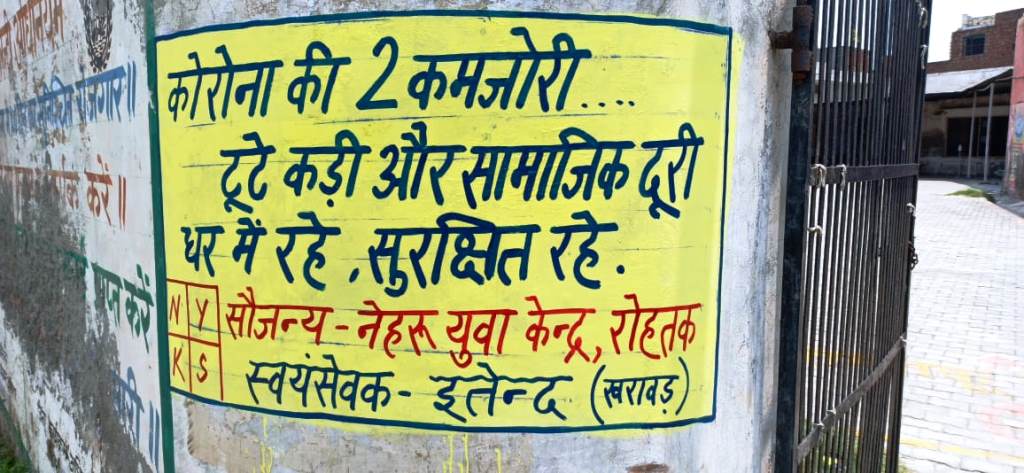 कोरोना की 2 कमजोरी....
टूटे कड़ी और सामाजिक दूरी
घर में रहे , सुरक्षित रहे.
N Y
K S
सौजन्य - नेहरू युवा केन्द्र, रोहतक
स्वयंसेवक - इतेन्द (खरावड़)
करें॥
करें